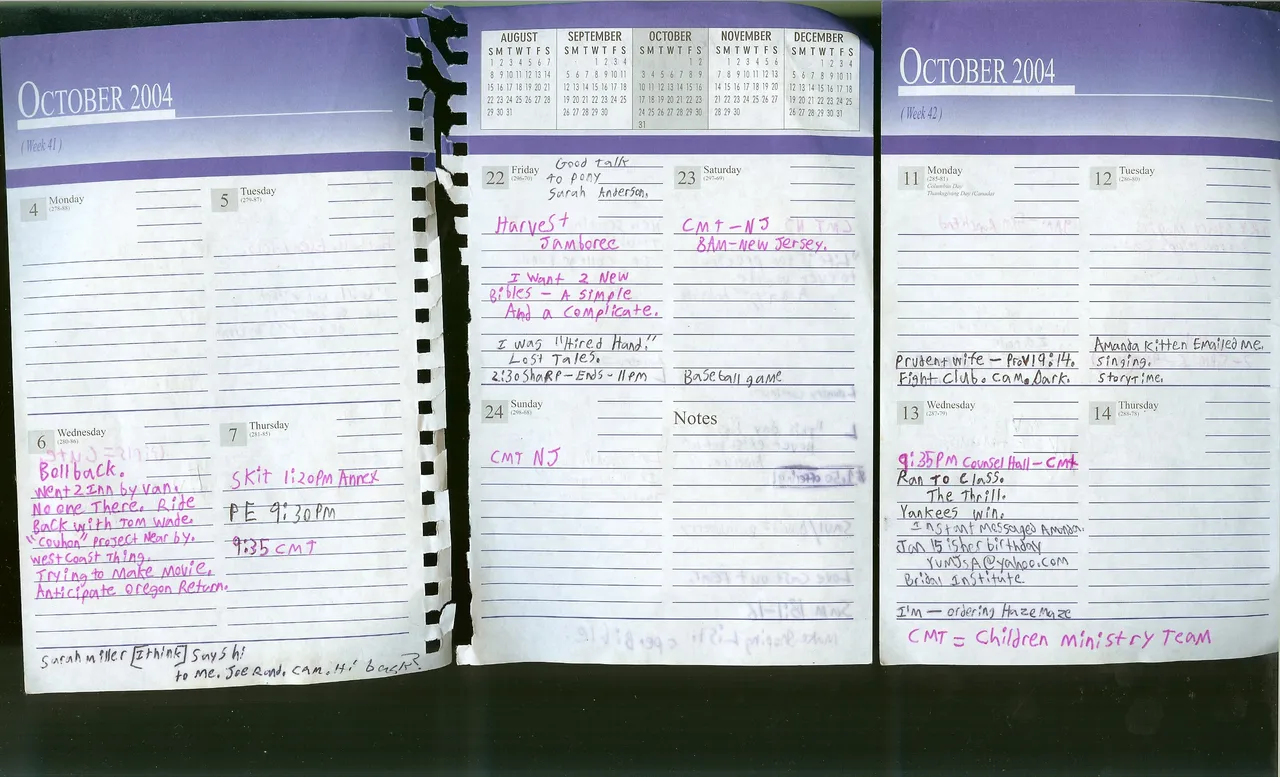 OCTOBER 2004
(Week 41)
4 Monday
(278-88)
5 Tuesday
(279-87)
6 Wednesday
(280-86)
Bollback.
Went 2 Inn by van.
No one There. Ride
Back with Tom Wade.
project Near by.
West Coast Thing.
Trying to Make Movie.
Anticipate Oregon Return.
7 Thursday
(281-85)
Skit 1:20pm Annex
PE 9:30pm
9:35 CMT
Sarah Miller [I think] says hi
to me. Joe Rond. Cam. Hi back?
AUGUST
S M T W T F S
1 2 3 4 5 6 7
8 9 10 11 12 13 14
15 16 17 18 19 20 21
22 23 24 25 26 27 28
29 30 31
SEPTEMBER
S M T W T F S
1 2 3 4
5 6 7 8 9 10 11
12 13 14 15 16 17 18
19 20 21 22 23 24 25
26 27 28 29 30
OCTOBER
S M T W T F S
1 2
3 4 5 6 7 8 9
10 11 12 13 14 15 16
17 18 19 20 21 22 23
24 25 26 27 28 29 30
31
NOVEMBER
S M T W T F S
1 2 3 4 5 6
7 8 9 10 11 12 13
14 15 16 17 18 19 20
21 22 23 24 25 26 27
28 29 30
DECEMBER
S M T W T F S
1 2 3 4
5 6 7 8 9 10 11
12 13 14 15 16 17 18
19 20 21 22 23 24 25
26 27 28 29 30 31
22 Friday
(296-70)
Good talk
to pony
Sarah Anderson.
Harvest
Jamboree
I Want 2 New
Bibles - A simple
And a complicate.
I was "Hired Hand."
Lost Tales.
2:30 ShaRP - Ends - 11pm
23 Saturday
(297-69)
CMT - NJ
8AM - New Jersey.
Baseball game
24 Sunday
(298-68)
CMT NJ
Notes
OCTOBER 2004
(Week 42)
11 Monday
(285-81)
Columbus Day
Thanksgiving Day (Canada)
Prudent wife - Prov 19:14.
Fight Club. Cam. Dark.
12 Tuesday
(286-80)
Amanda Kitten Emailed me.
singing.
storytime.
13 Wednesday
(287-79)
9:35PM Counsel Hall - CMT
Ran To Class.
The Thrill.
Yankees win.
Instant Messaged Amanda.
Jan 15 is her birthday
YUMJSA@yahoo.com
Bridal Institute.
I'm - ordering Haze Maze
14 Thursday
(288-78)
CMT = Children Ministry Team